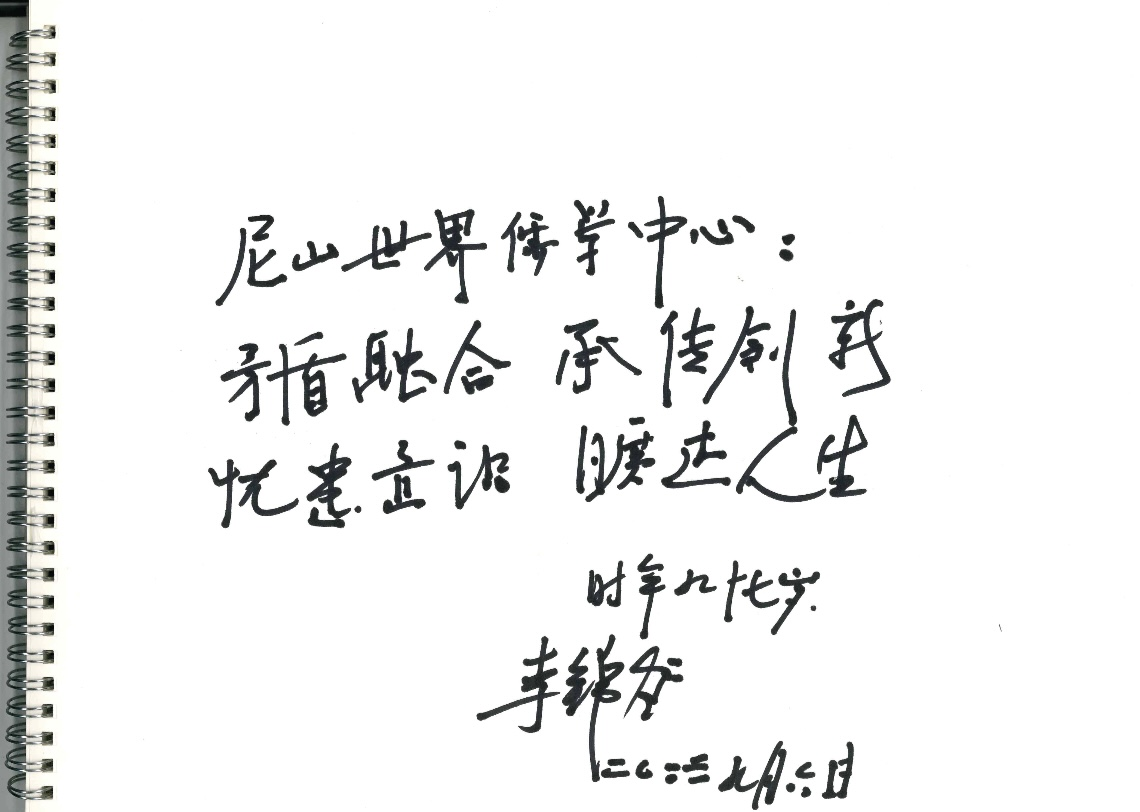 尼山世界儒学中心：
矛盾融合 承传创新
忧患意识 旷达人生
时年九十七岁
李锦全
二〇二三 九月六日